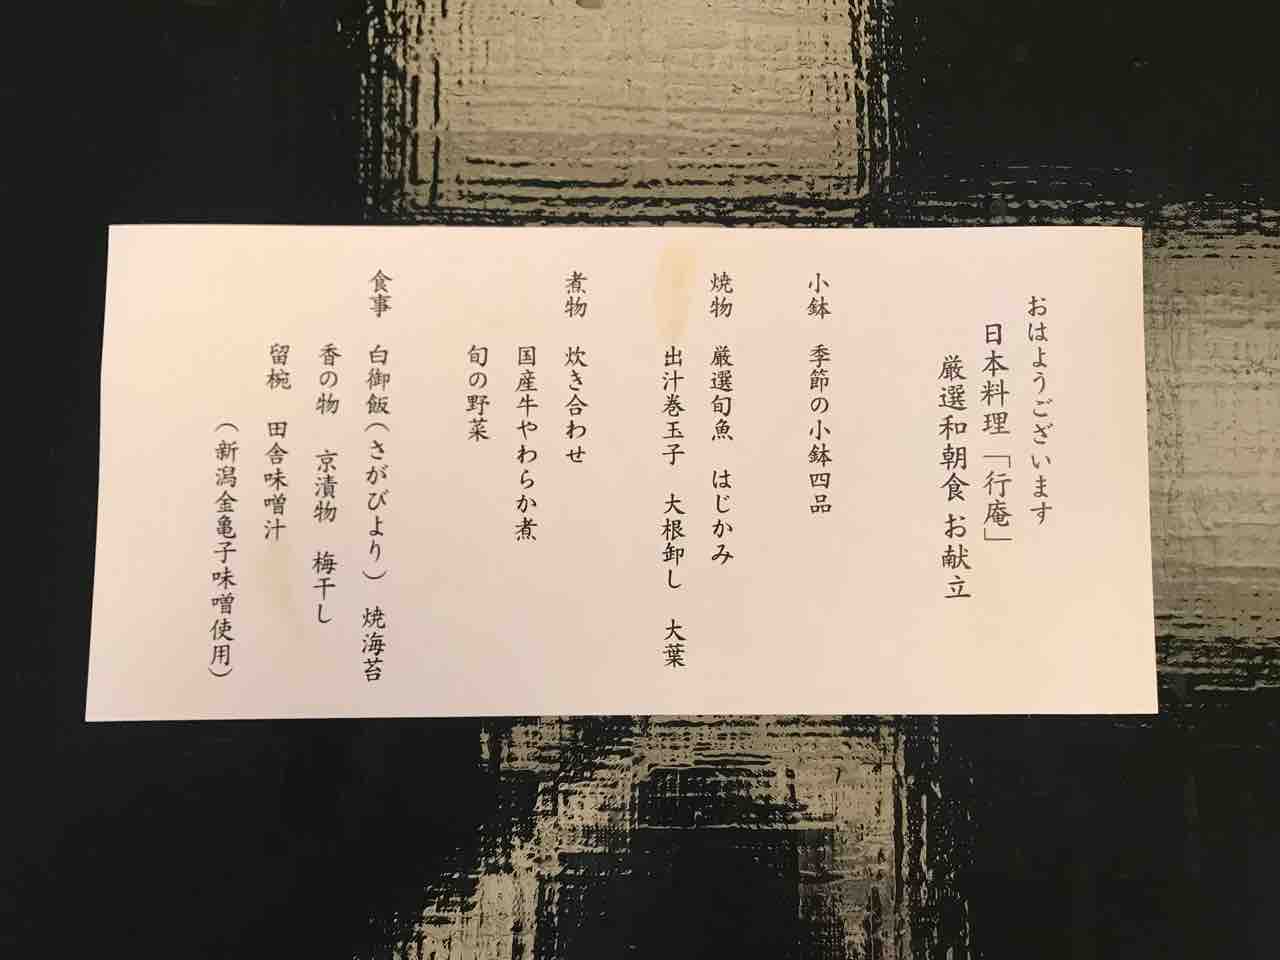 おはようございます
日本料理「行庵」
厳選和朝食 お献立
小鉢 季節の小鉢四品
焼物 厳選旬魚 はじかみ
出汁巻玉子 大根卸し 大葉
煮物 炊き合わせ
国産牛やわらか煮
旬の野菜
食事 白御飯(さがびより) 焼海苔
香の物 京漬物 梅干し
留椀 田舎味噌汁
(新潟金亀子味噌使用)